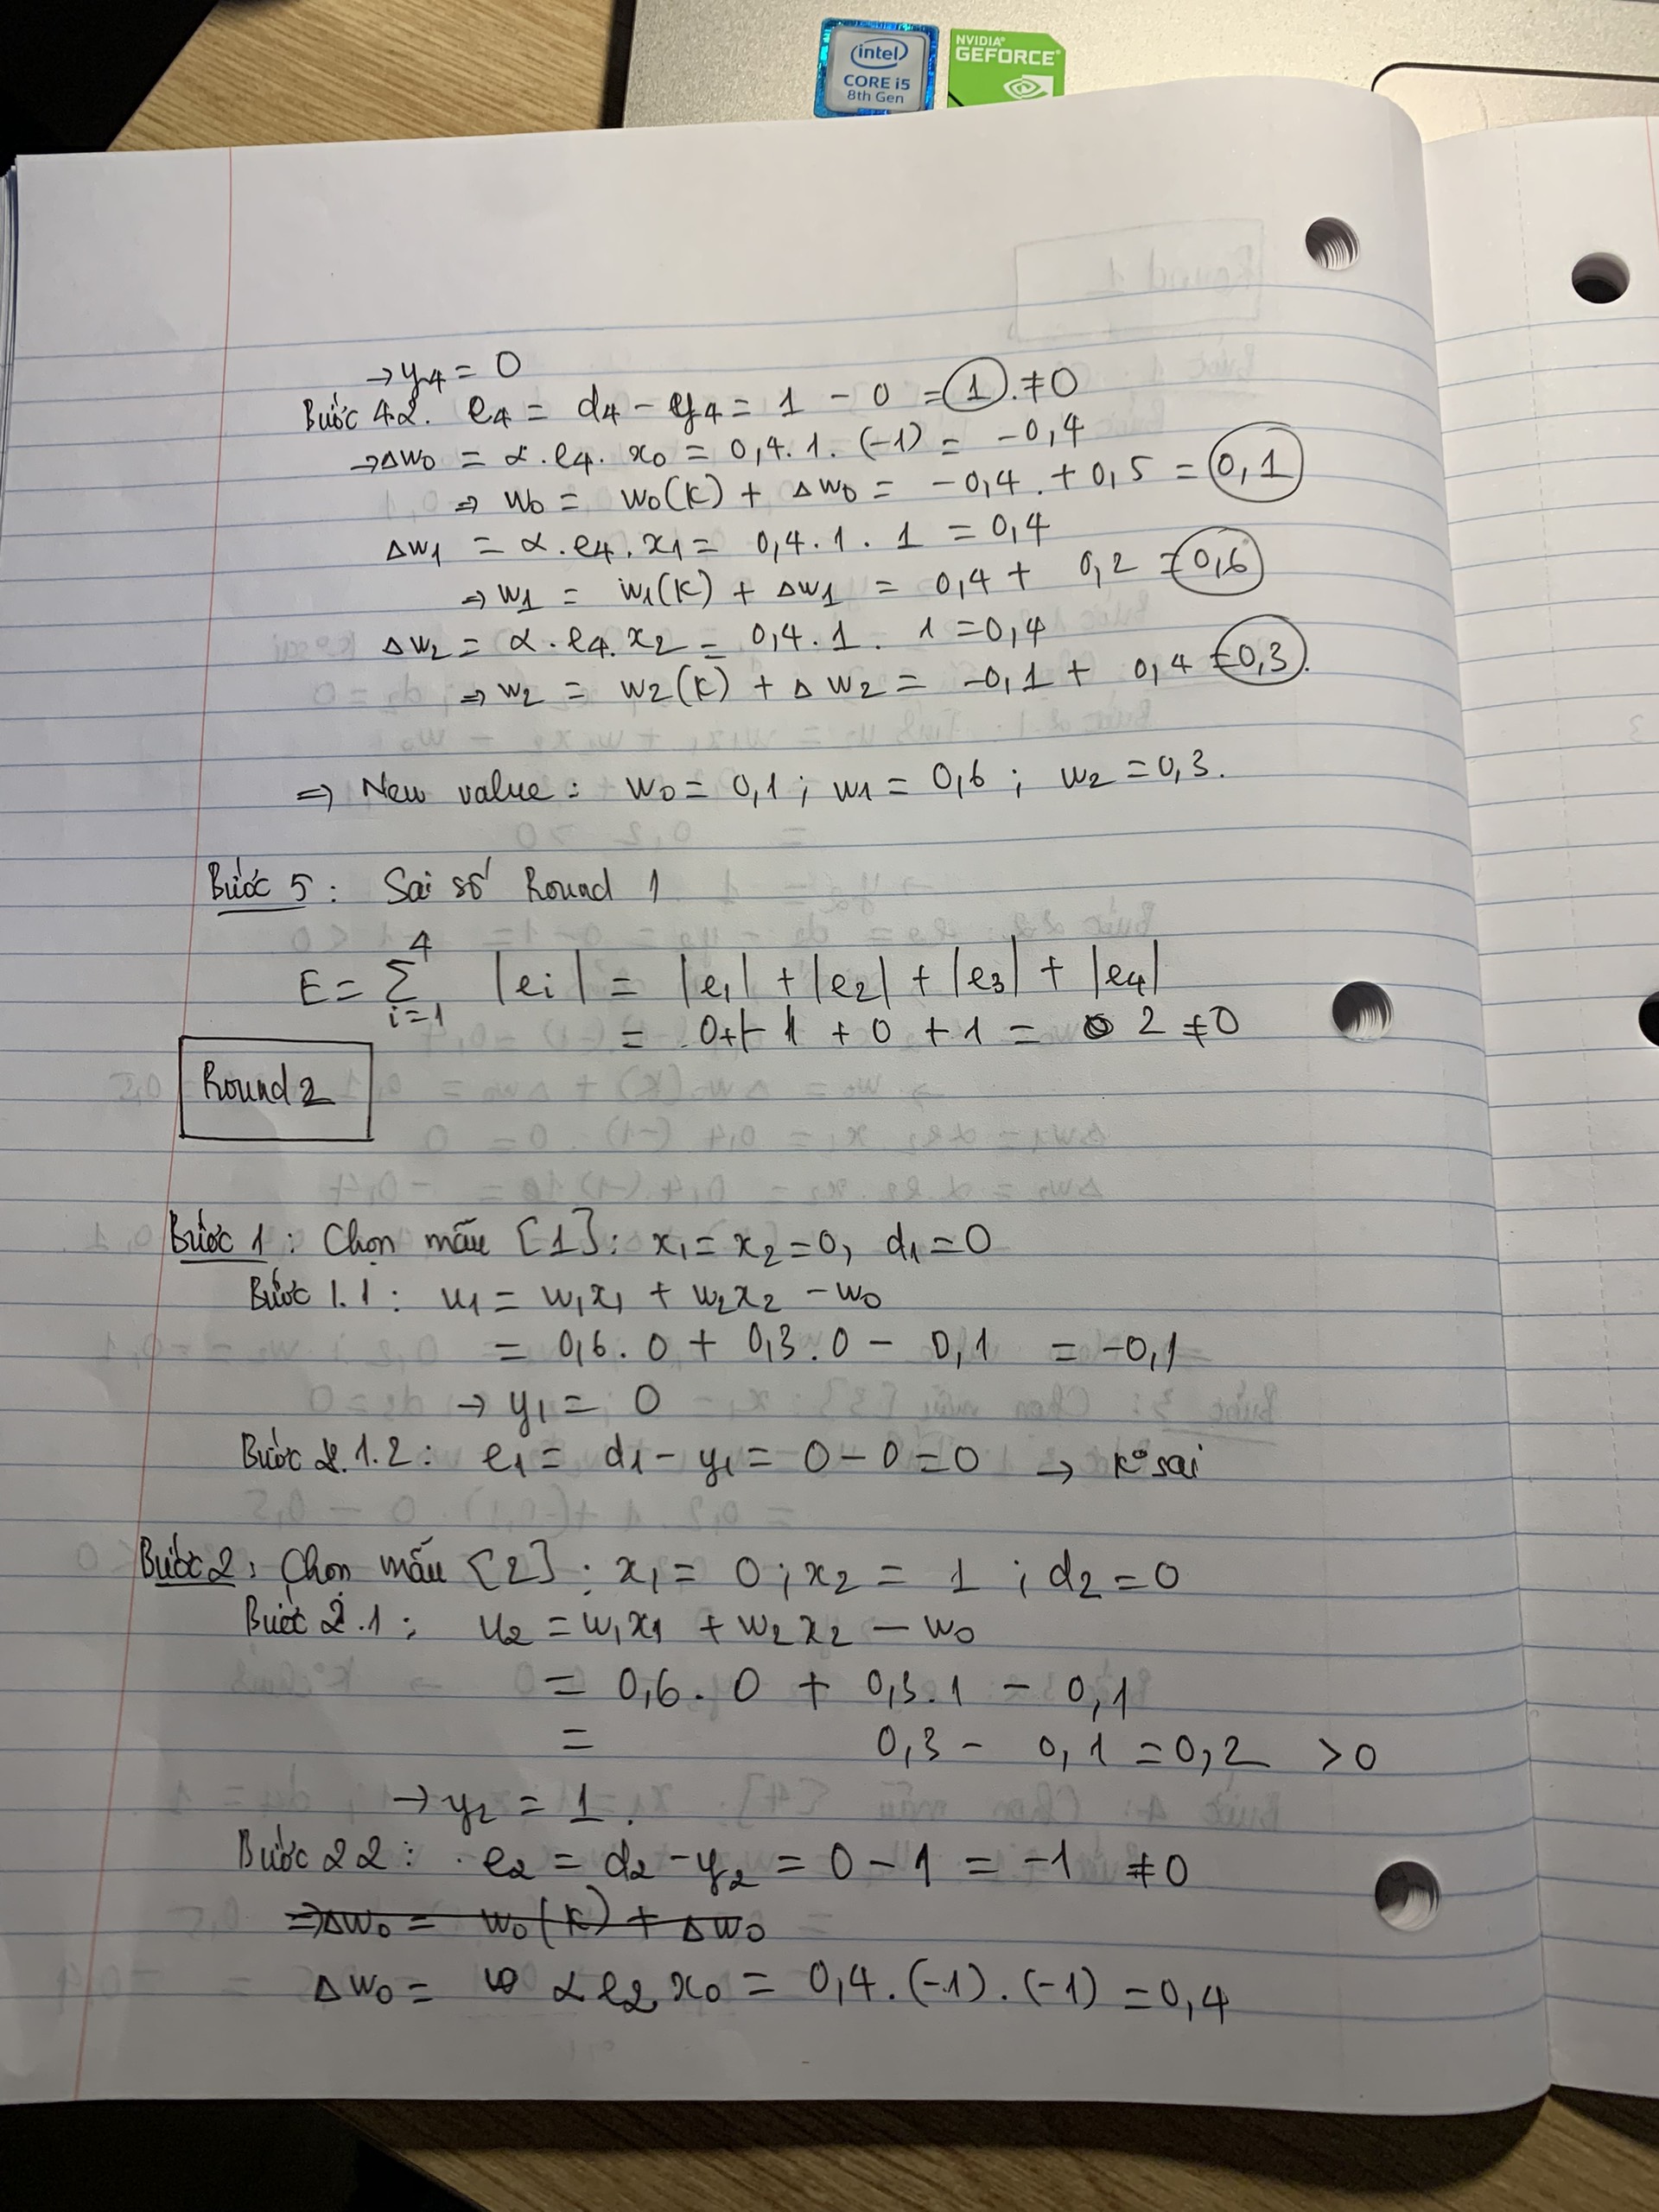 intel
CORE i5
8th Gen
NVIDIA
GEFORCE
→ y4 = 0
Bước 4.2. e4 = d4 - y4 = 1 - 0 = 1. ≠ 0
→ Δw0 = α.e4.x0 = 0,4.1.(-1) = -0,4
⇒ w0 = w0(K) + Δw0 = -0,4.+0,5 = 0,1
Δw1 = α.e4.x1 = 0,4.1.1 = 0,4
⇒ w1 = w1(K) + Δw1 = 0,4 + 0,2 = 0,6
Δw2 = α.e4.x2 = 0,4.1.1 = 0,4
⇒ w2 = w2(K) + Δw2 = -0,1 + 0,4 = 0,3.
⇒ New value: w0 = 0,1; w1 = 0,6; w2 = 0,3.
Bước 5: Sai số Round 1
E = Σ_{i=1}^{4} |ei| = |e1| + |e2| + |e3| + |e4|
= 0 + 1 + 0 + 1 = 2 ≠ 0
Round 2
Bước 1: Chọn mẫu [1]: x1 = x2 = 0, d1 = 0
Bước 1.1: u1 = w1x1 + w2x2 - w0
= 0,6.0 + 0,3.0 - 0,1 = -0,1
→ y1 = 0
Bước 1.2: e1 = d1 - y1 = 0 - 0 = 0 → K° sai
Bước 2: Chọn mẫu [2]: x1 = 0; x2 = 1; d2 = 0
Bước 2.1: u2 = w1x1 + w2x2 - w0
= 0,6.0 + 0,3.1 - 0,1
= 0,3 - 0,1 = 0,2 > 0
→ y2 = 1.
Bước 2.2: e2 = d2 - y2 = 0 - 1 = -1 ≠ 0
⇒ Δw0 = w0(K) + Δw0
Δw0 = α e2 x0 = 0,4.(-1).(-1) = 0,4